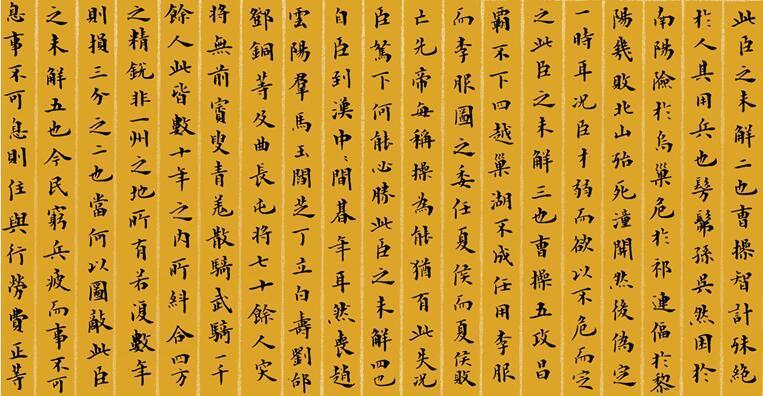 此臣之未解二也曹操智計殊絶
於人其用兵也髣髴孫吳然困於
南陽險於烏巢危於祁連偪於黎
陽幾敗北山殆死潼關然後偽定
一時耳况臣才弱而欲以不危而定
之此臣之未解三也曹操五攻昌
霸不下四越巢湖不成任用李服
而李服圖之委任夏侯而夏侯敗
亡先帝每稱操為能猶有此失况
臣駑下何能必勝此臣之未解四也
自臣到漢中〻間朞年耳然喪趙
雲陽羣馬玉閻芝丁立白壽劉郃
鄧銅等及曲長屯將七十餘人突
將無前賨叟青羌散騎武騎一千
餘人此皆數十年之内所糾合四方
之精銳非一州之地所有若復數年
則損三分之二也當何以圖敵此臣
之未解五也今民窮兵疲而事不可
息事不可息則住與行勞費正等